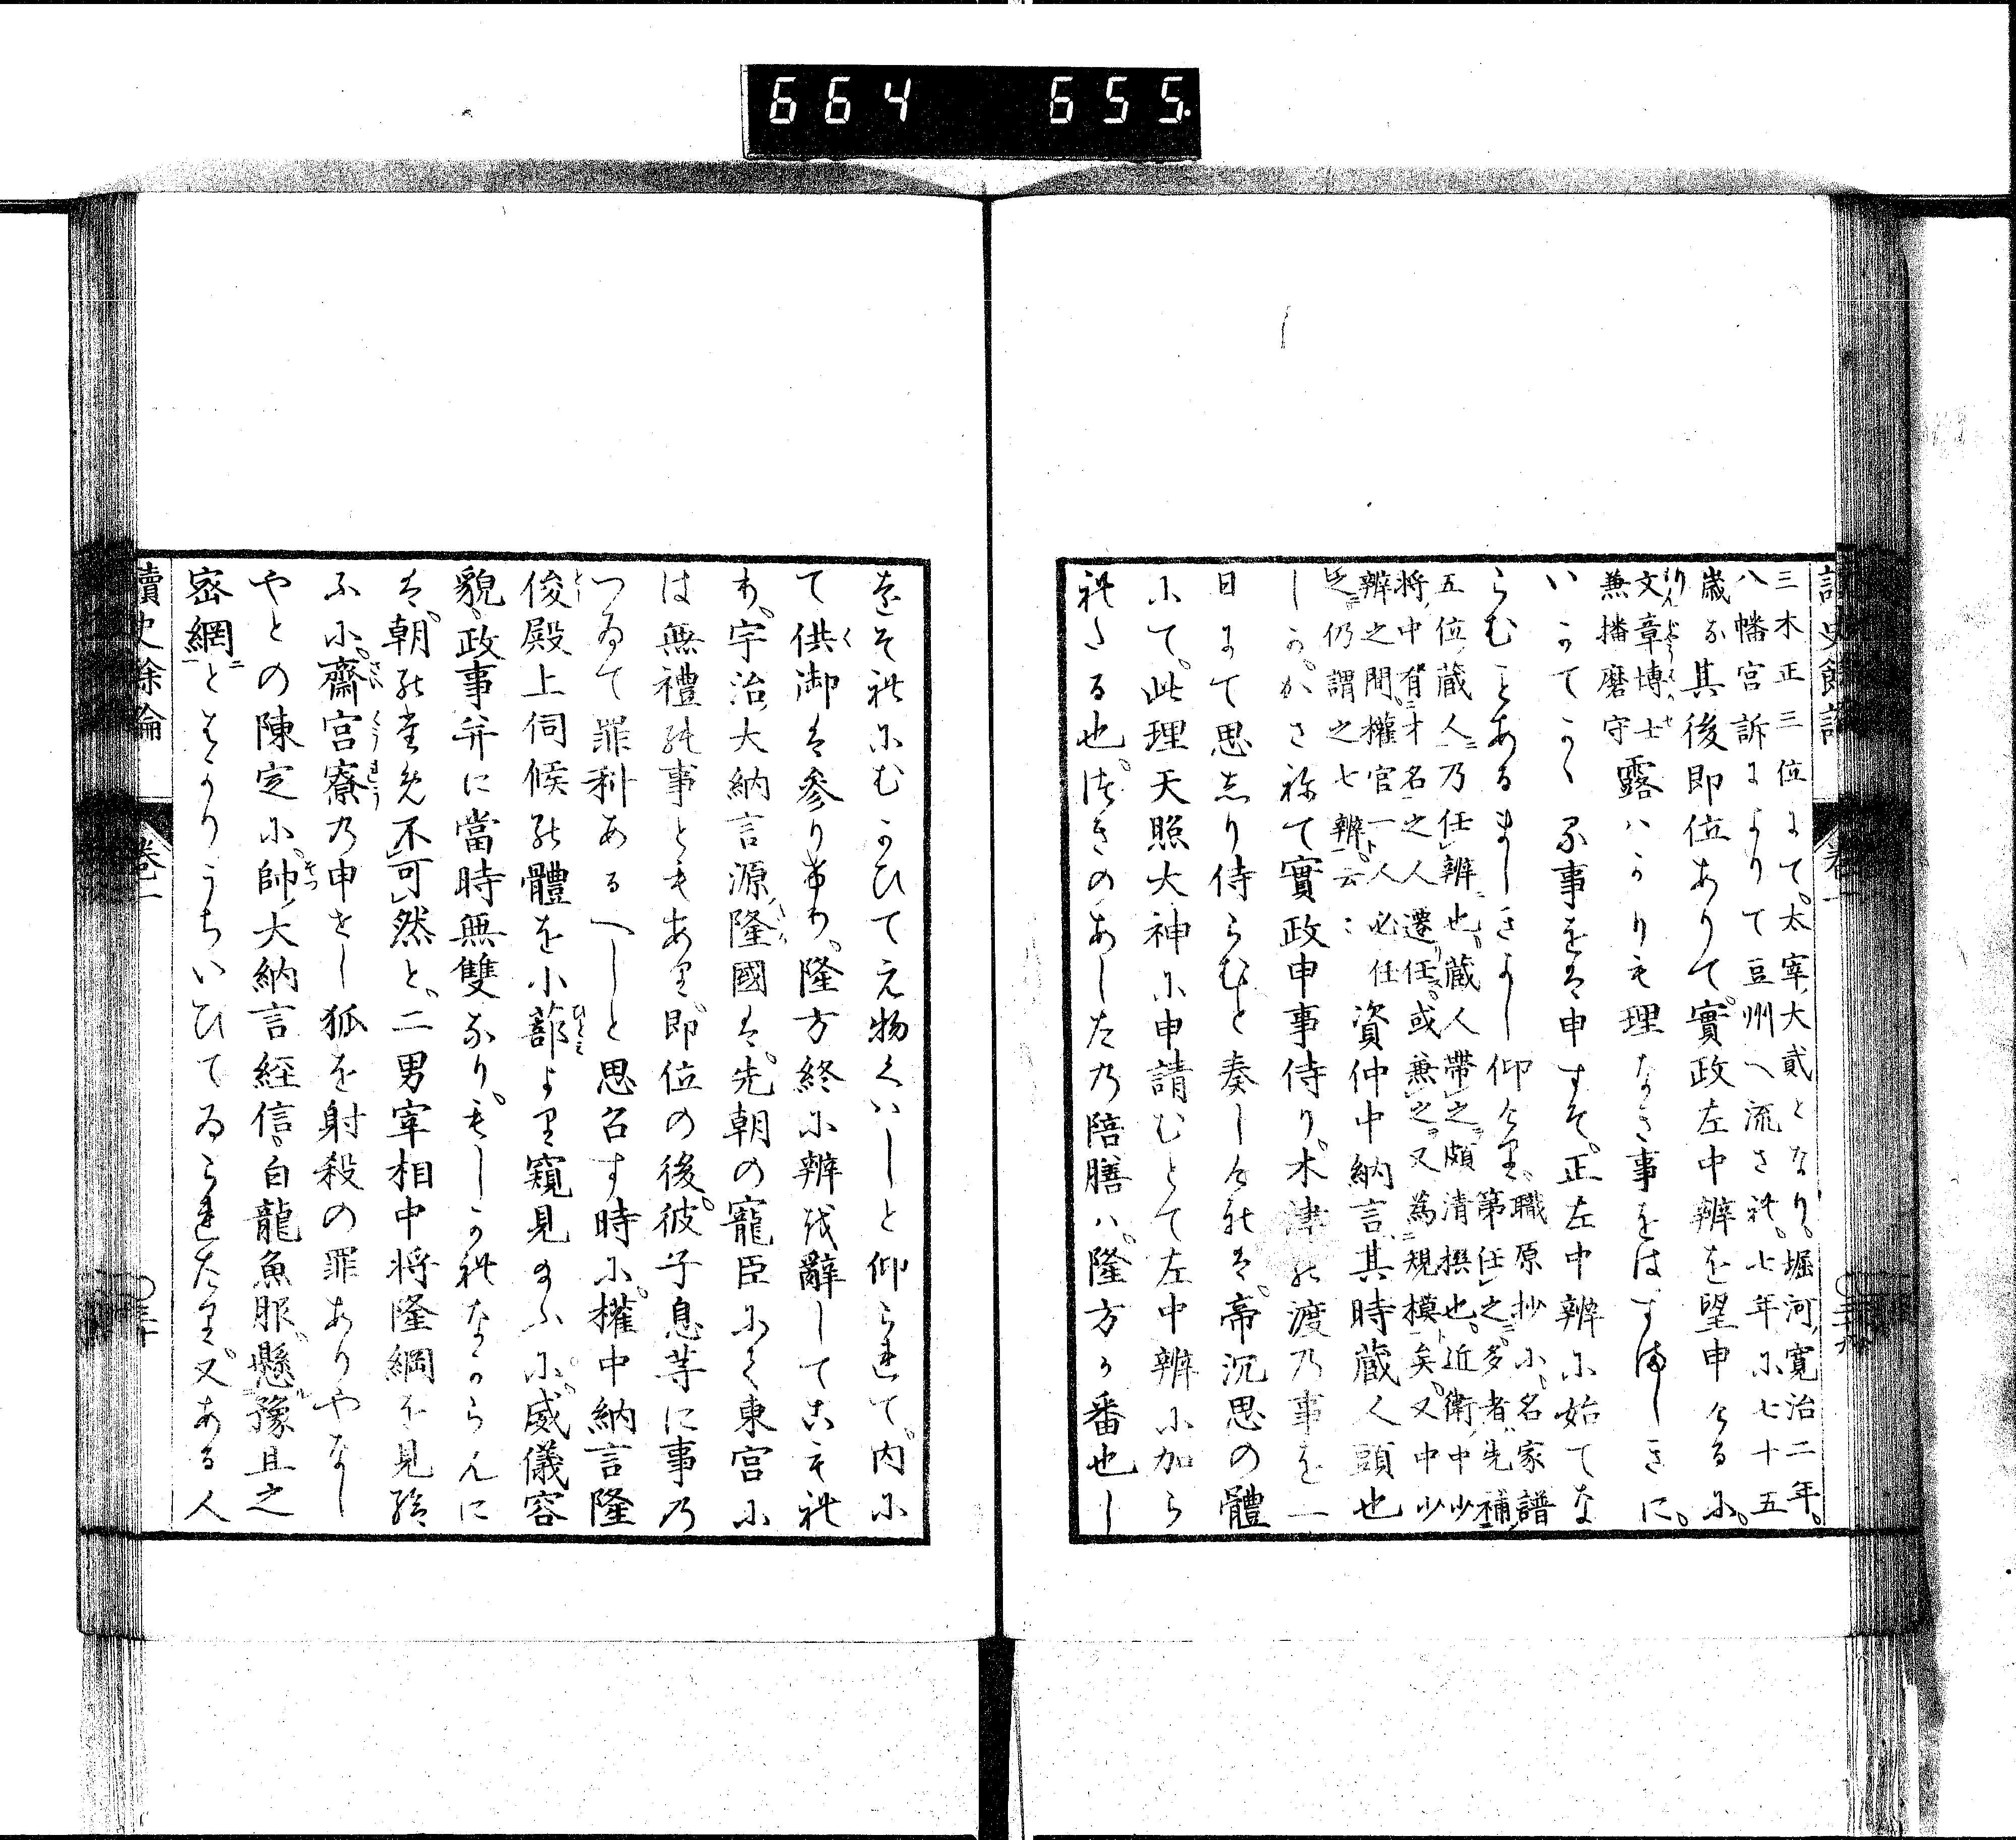 664 655
讀史餘論 卷一
三木正三位にて。太宰大貳となり。堀河寛治二年。
八幡宮訴によりて豆州へ流され。七年に七十五
歳な
りん
其後即位ありて。實政左中辨を望申ける に。
文章博士
兼播磨守
露はかりも理なき事をはすましきに。
いかてかゝる事をは申すそ。正左中辨に始てな
らむことあるましきよし仰けり。
職原抄に。名家譜
第任之。多者先補
五位蔵人乃任辨也。蔵人帯之。頗清撰也。近衛中少
将中有才名之人遷任。或兼之。又為規模矣。又中少
辨之間權官一人必任
之。仍謂之七辨云々
資仲中納言其時蔵人頭也
しか。かさねて實政申事侍り。木津の渡の事を一
日にて思しり侍らむと奏しけれは。帝沉思の體
にて。此理天照大神に申請むとて左中辨に加ら
れたる也。つきのあしたの陪膳ハ。隆方か番也し
をそれにむかひてえ物くハしと仰られて。内に
て供御は参りけり。隆方終に辨を辭してこもれ
り。宇治大納言源隆國は。先朝の寵臣にて東宮に
は無禮の事ともあり。即位の後。彼子息等に事の
つゐて罪科あるへしと思召す時に。權中納言隆
俊殿上伺候の體を小蔀より窺見給ふに。威儀容
貌政事并に當時無雙なり。もしこれなからんに
は。朝の
不可然と。二男宰相中将隆綱を見給
ふに。齋宮寮の申せし狐を射殺の罪ありやなし
やとの陳定に。帥大納言経信。白龍魚服懸豫且之
密網とはかりうちいひてゐられたり。又ある人
讀史餘論 卷一 三十